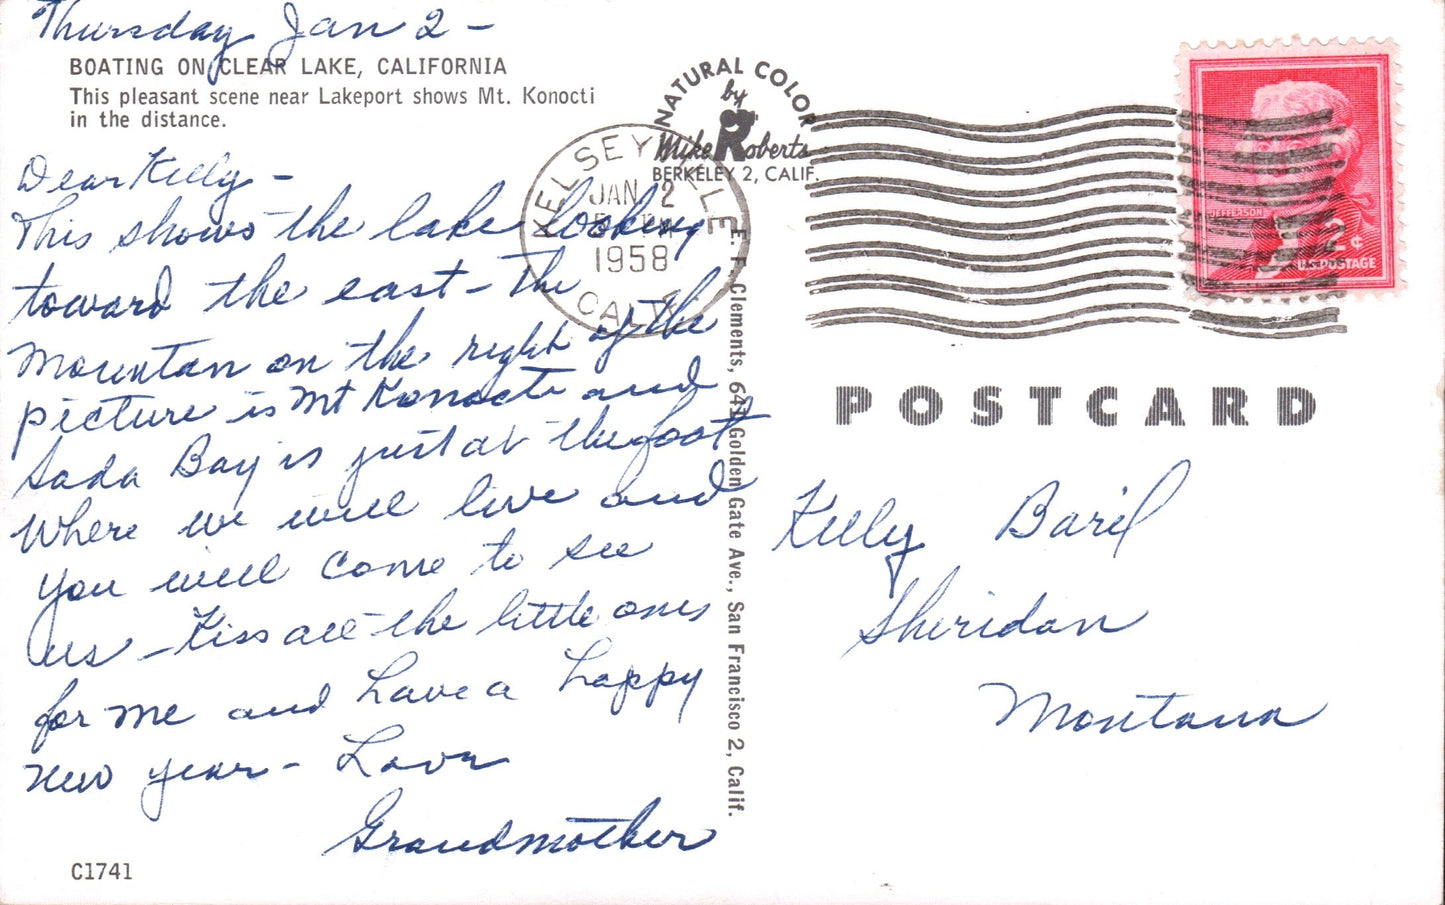 Thursday Jan 2 –
BOATING ON CLEAR LAKE, CALIFORNIA
This pleasant scene near Lakeport shows Mt. Konocti
in the distance.
Dear Kelly –
This shows the lake looking
toward the east – The
Mountan on the right of the
picture is Mt Konocti and
Soda Bay is just at the foot
Where we will live and
you will come to see
us – Kiss all the little ones
for me and have a happy
new year – Love
Grandmother
C1741
NATURAL COLOR
by
Mike Roberts
BERKELEY 2, CALIF.
KELSEYVILLE
JAN 2
PM
1958
CALIF
E. F. Clements, 641 Golden Gate Ave., San Francisco 2, Calif.
JEFFERSON
¢
U.S. POSTAGE
POSTCARD
Kelly Baril
Sheridan
Montana